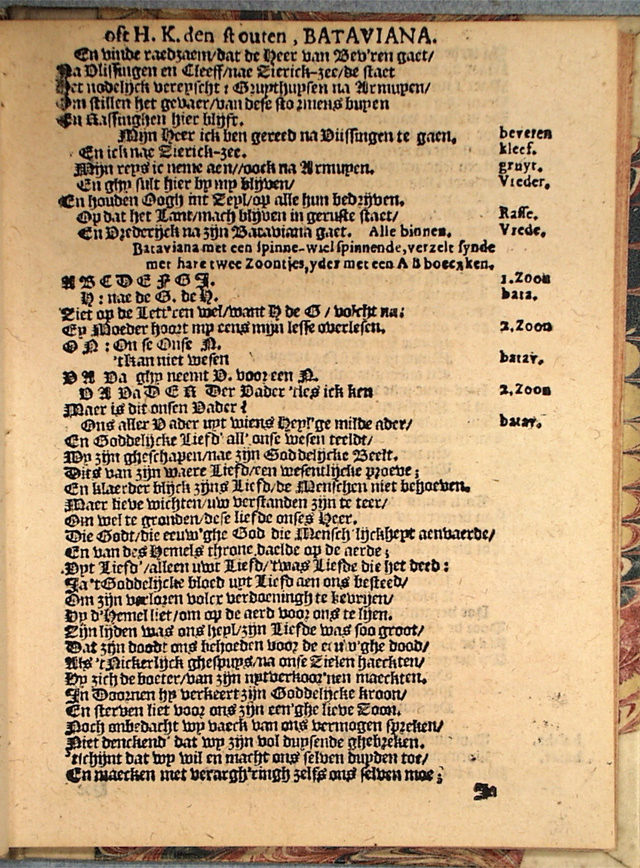 oft H. K. den stouten, BATAVIANA.
En vinde raedzaem/dat de Heer van Bev'ren gaet/
Na Vlissingen en Cleeff/nae Zierick-zee/de staet
Het nodelijck vereyscht: Gruythuysen na Armuyen/
Om stillen het gevaer/van dese stormens buyen
En Rassinghen hier blijft.
Mijn Heer ick ben gereed na Vlissingen te gaen. beveren
En ick nae Zierick-zee. kleef.
Mijn reys ic neme aen//oock na Armuyen. gruyt.
En ghy sult hier by my blijven/ Vreder.
En houden Oogh int Zeyl/op alle hun bedrijven.
Op dat het Lant/mach blijven in geruste staet/ Rasse.
En Vrederijck na zijn Bataviana gaet. Alle binnen. Vrede.
Bataviana met een spinne-wiel spinnende, verzelt synde
met hare twee Zoontjes, yder met een A B boecxken.
A B C D E F G I. 1. Zoon
H: nae de G. de H. bata.
Ziet op de Lett'ren wel/want H de G / volcht na:
Ey Moeder hoort my eens mijn lesse overlesen. 2. Zoon
O N: On se Onse N.
'tkan niet wesen batav.
V A Va ghy neemt V. voor een N.
V A Va D E R Der Vader 'ties ick ken 2. Zoon
Maer is dit onsen Vader?
Ons aller Vader uyt wiens Heyl'ge milde ader/ batav.
En Goddelijcke Liefd' all' onse wesen teeldt/
Wy zijn gheschapen/nae zijn Goddelijcke Beelt.
Dits van zijn waere Liefd/een wesentlijcke proeve;
En klaerder blijck zijns Liefd/de Menschen niet behoeven.
Maer lieve wichten/uw verstanden zijn te teer/
Om wel te gronden/dese liefde onses Heer.
Die Godt/die eeuw'ghe God die Mensch'lijckheyt aenvaerde/
En van des Hemels throne daelde op de aerde;
Uyt Liefd'/alleen uwt Liefd/'twas Liefde die het deed:
Ja 'tGoddelijcke bloed uyt Liefd aen ons besteed/
Om zijn verloren volcx verdoeningh te kevrijen/
Hy d'Hemel liet/om op de aerd voor ons te lijen.
Zijn lijden was ons heyl/zijn Liefde was soo groot/
Dat zijn doodt ons behoeden voor de eeuw'ghe dood/
Als 'tNickerlijck ghespuys/na onse Zielen haeckten/
Hy zich de boeter/van zijn uytverkoor'nen maeckten.
In Doornen hy verkeert zijn Goddelijcke kroon/
En sterven liet voor ons zijn een'ghe lieve Zoon.
Noch onbedacht wy vaeck van ons vermogen spreken/
Niet denckend' dat wy zijn vol duysende ghebreken.
'tschijnt dat wy wil en macht ons selven duyden toe/
En maecken met verargh'ringh zelfs ons selven moe;
In